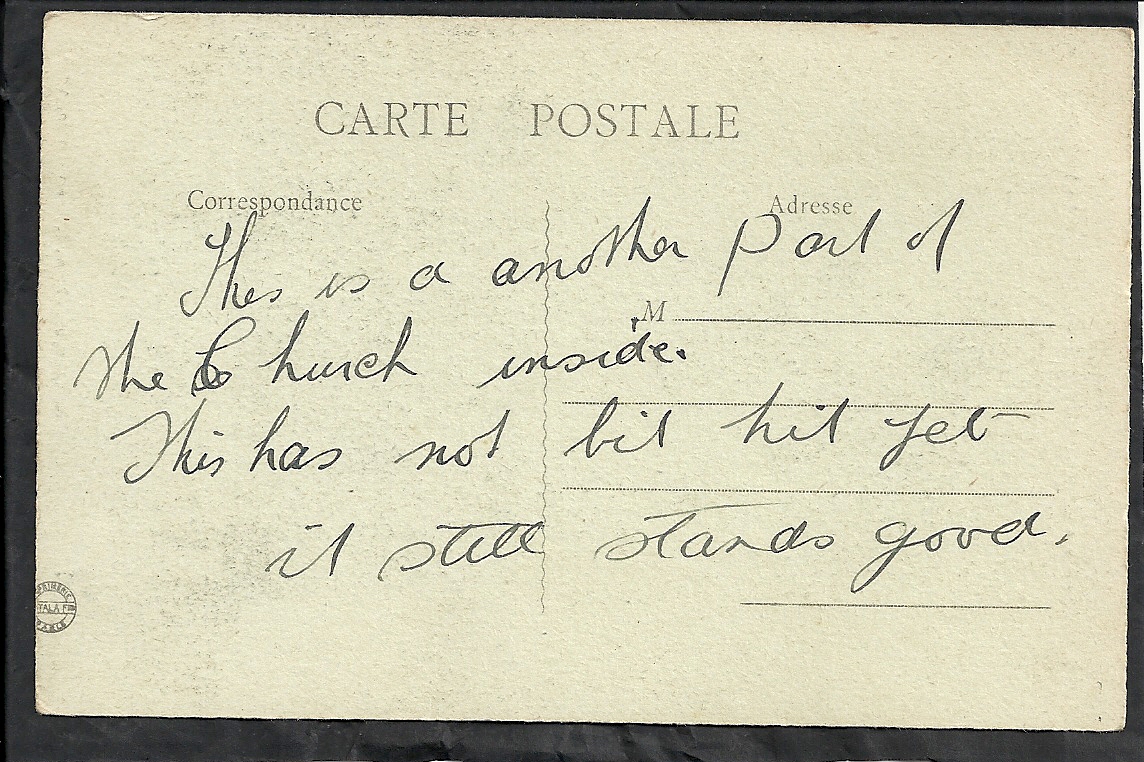 CARTE POSTALE
Correspondance
Adresse
This is a another Part of
M
the Church inside.
This has not bit hit yet
it still stands good.